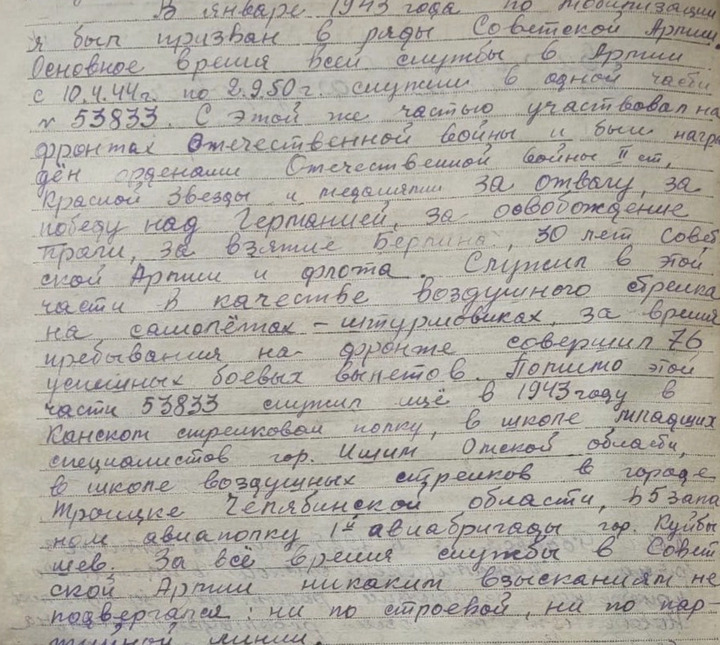 В январе 1943 года по мобилизации
я был призван в ряды Советской Армии.
Основное время всей службы в Армии
с 10.4.44г. по 2.9.50г. служили в одной части
№ 53833. С этой же частью участвовал на
фронтах Отечественной войны и был награ
дён орденами Отечественной войны II ст,
Красной Звезды и медалями за отвагу, за
победу над Германией, за освобождение
Праги, за взятие Берлина, 30 лет Совет
ской Армии и флота. Служил в этой
части в качестве воздушного стрелка
на самолётах - штурмовиках, за время
пребывания на фронте совершил 76
успешных боевых вылетов. Помимо этой
части 53833 служил ещё в 1943 году в
Канском стрелковом полку, в школе младших
специалистов гор. Ишим Омской области,
в школе воздушных стрелков в городе
Троицке Челябинской области, в 5 запа
ном авиаполку 1й авиабригады гор. Куйбы
шев. За всё время службы в Совет
ской Армии никаким взысканиям не
подвергался: ни по строевой, ни по пар-
тийной линии.